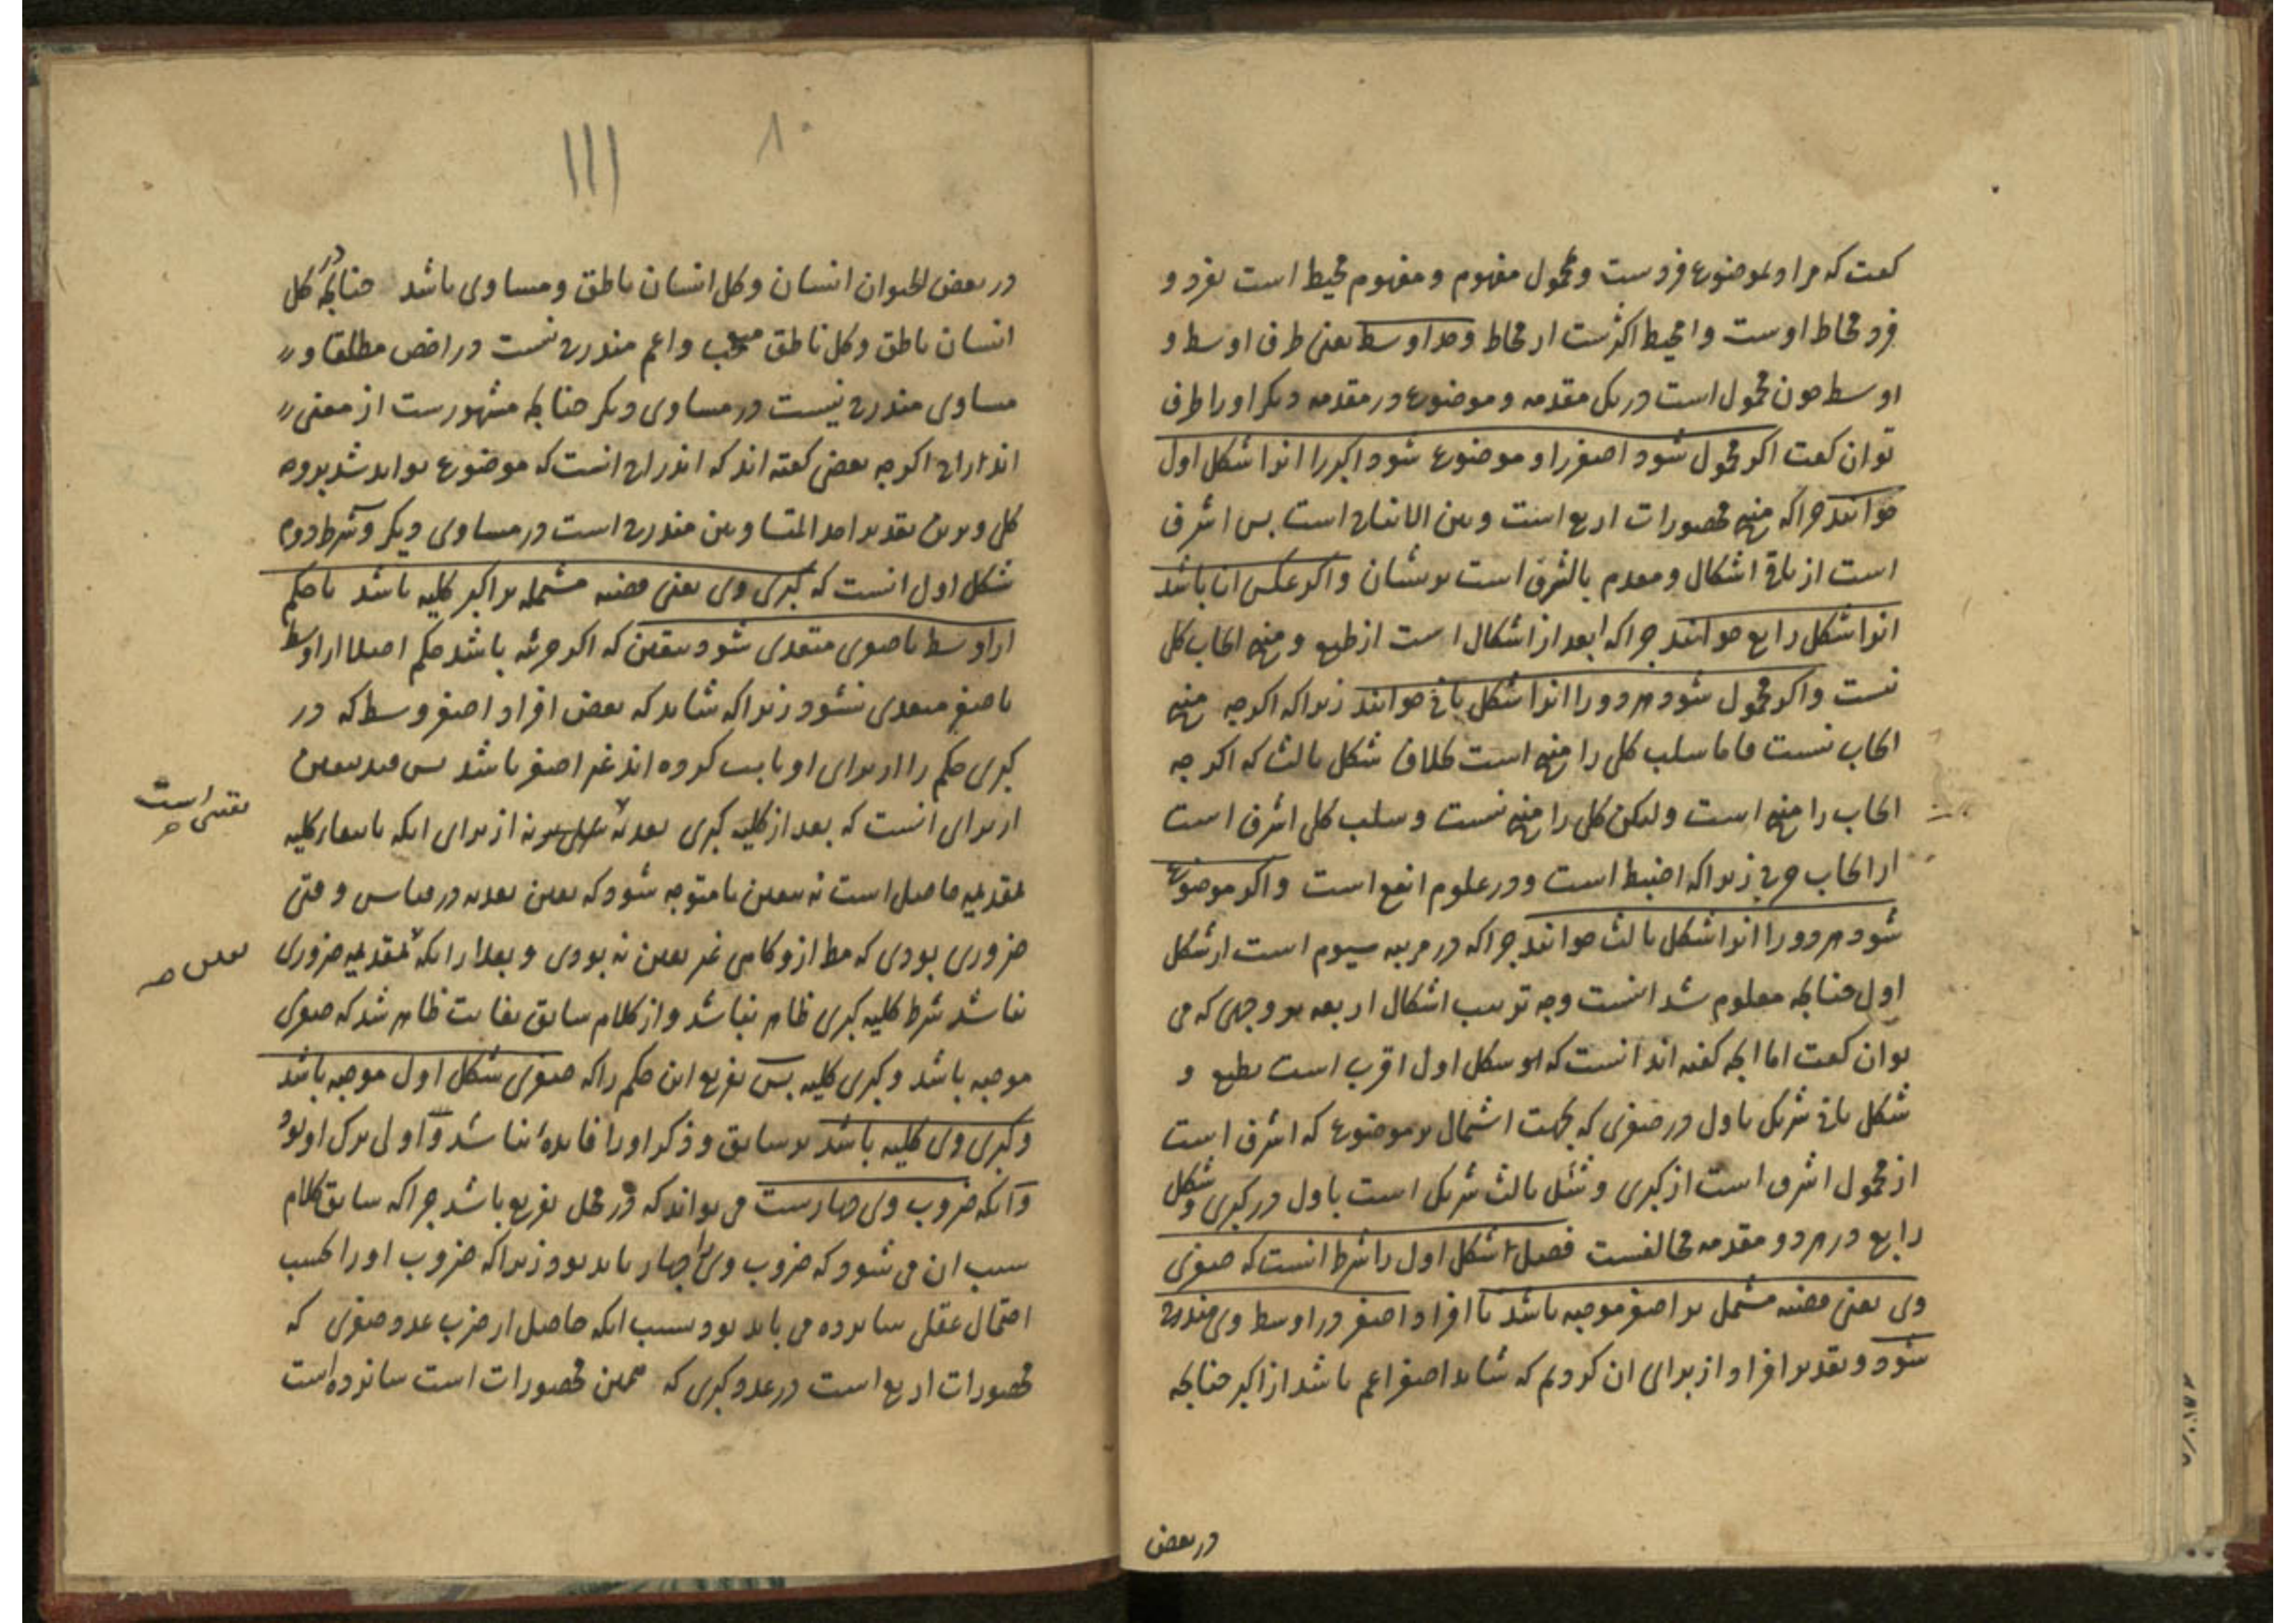 کفت که مراد بموضوع فردست و محمول مفهوم و مفهوم محیط است بفرد و
فرد محاط اوست و محیط اکبرست از محاط وحد اوسط یعنی طرف اوسط و
اوسط چون محمول است در یک مقدمه و موضوع در مقدمه دیکر او را طرف
توان کفت اکر محمول شود اصغر را و موضوع شود اکبر را انرا شکل اول
خوانند چرا که منتج محصورات اربع است و بین الانتاج است پس اشرف
است از باقی اشکال و مقدم بالشرف است بریشان و اکر عکس ان باشد
انرا شکل رابع خوانند چرا که ابعد از اشکال است از طبع و منتج ایجاب کلی
نیست و اکر محمول شود هر دو را انرا شکل ثانی خوانند زیرا که اکر چه منتج
ایجاب نیست فاما سلب کلی را منتج است بخلاف شکل ثالث که اکر چه
ایجاب را منتج است ولیکن کلی را منتج نیست و سلب کلی اشرف است
از ایجاب جزئی زیرا که اضبط است و در علوم انفع است و اکر موضوع
شود هر دو را انرا شکل ثالث خوانند چرا که در مرتبه سیوم است از شکل
اول چنانچه معلوم شد اینست وجه ترتیب اشکال اربعه بر وجهی که می
توان کفت اما انچه کفته اند انست که شکل اول اقرب است بطبع و
شکل ثانی شریک باول در صغری که بجهت اشتمال بر موضوع که اشرف است
از محمول اشرف است از کبری و شکل ثالث شریک است باول در کبری و شکل
رابع در هر دو مقدمه مخالفست فصل شکل اول را شرط انست که صغری
وی یعنی قضیه مشتمل بر اصغر موجبه باشد تا افراد اصغر در اوسط وی مندرج
شود و تقدیر افراد از برای ان کردیم که شاید اصغر اعم باشد از اکبر چنانچه
در بعض
۸۰
در بعض الحیوان انسان و کل انسان ناطق و مساوی باشد چنانچه در کل
انسان ناطق و کل ناطق متعجب و اعم مندرج نیست در اخص مطلقا و
مساوی مندرج نیست در مساوی دیکر چنانچه مشهورست از معنی
اندراج اکرچه بعضی کفته اند که اندراج انست که موضوع تواند شد بر وجه
کلی و برین تقدیر احد المتساویین مندرج است در مساوی دیکر و شرط دوم
شکل اول انست که کبری وی یعنی قضیه مشتمله بر اکبر کلیه باشد تا حکم
از اوسط باصغر متعدی شود بیقین که اکر جزئیه باشد حکم اصلا از اوسط
باصغر متعدی نشود زیرا که شاید که بعض افراد اوسط که در
کبری حکم را از برای او ثابت کرده اند غیر اصغر باشد پس قید بیقین
از برای انست که بعد از کلیه کبری تعدیه نه از برای انکه با انتفاء کلیه
تعدیه حاصل است نه بیقین تا متوجه شود که یقین تعدیه در قیاس وقتی
ضروری بودی که مط ازو کاهی غیر یقین نه بودی و بعد از انکه تعدیه ضروری
نباشد شرط کلیه کبری ظاهر نباشد و از کلام سابق بغایت ظاهر شد که صغری
موجبه باشد و کبری کلیه پس تفریع این حکم را که صغری شکل اول موجبه باشد
و کبری وی کلیه باشد بر سابق و ذکر او را فایده نباشد و اولی ترک او بود
و آنکه ضروب وی چهارست می تواند که در محل تفریع باشد چرا که سابق کلام
سبب ان می شود که ضروب وی چهار باید بود زیرا که ضروب او را بحسب
احتمال عقلی شانزده می باید بود بسبب انکه حاصل از ضرب عدد صغری که
محصورات اربع است در عدد کبری که همین محصورات است شانزده است
یقینی است
یقین